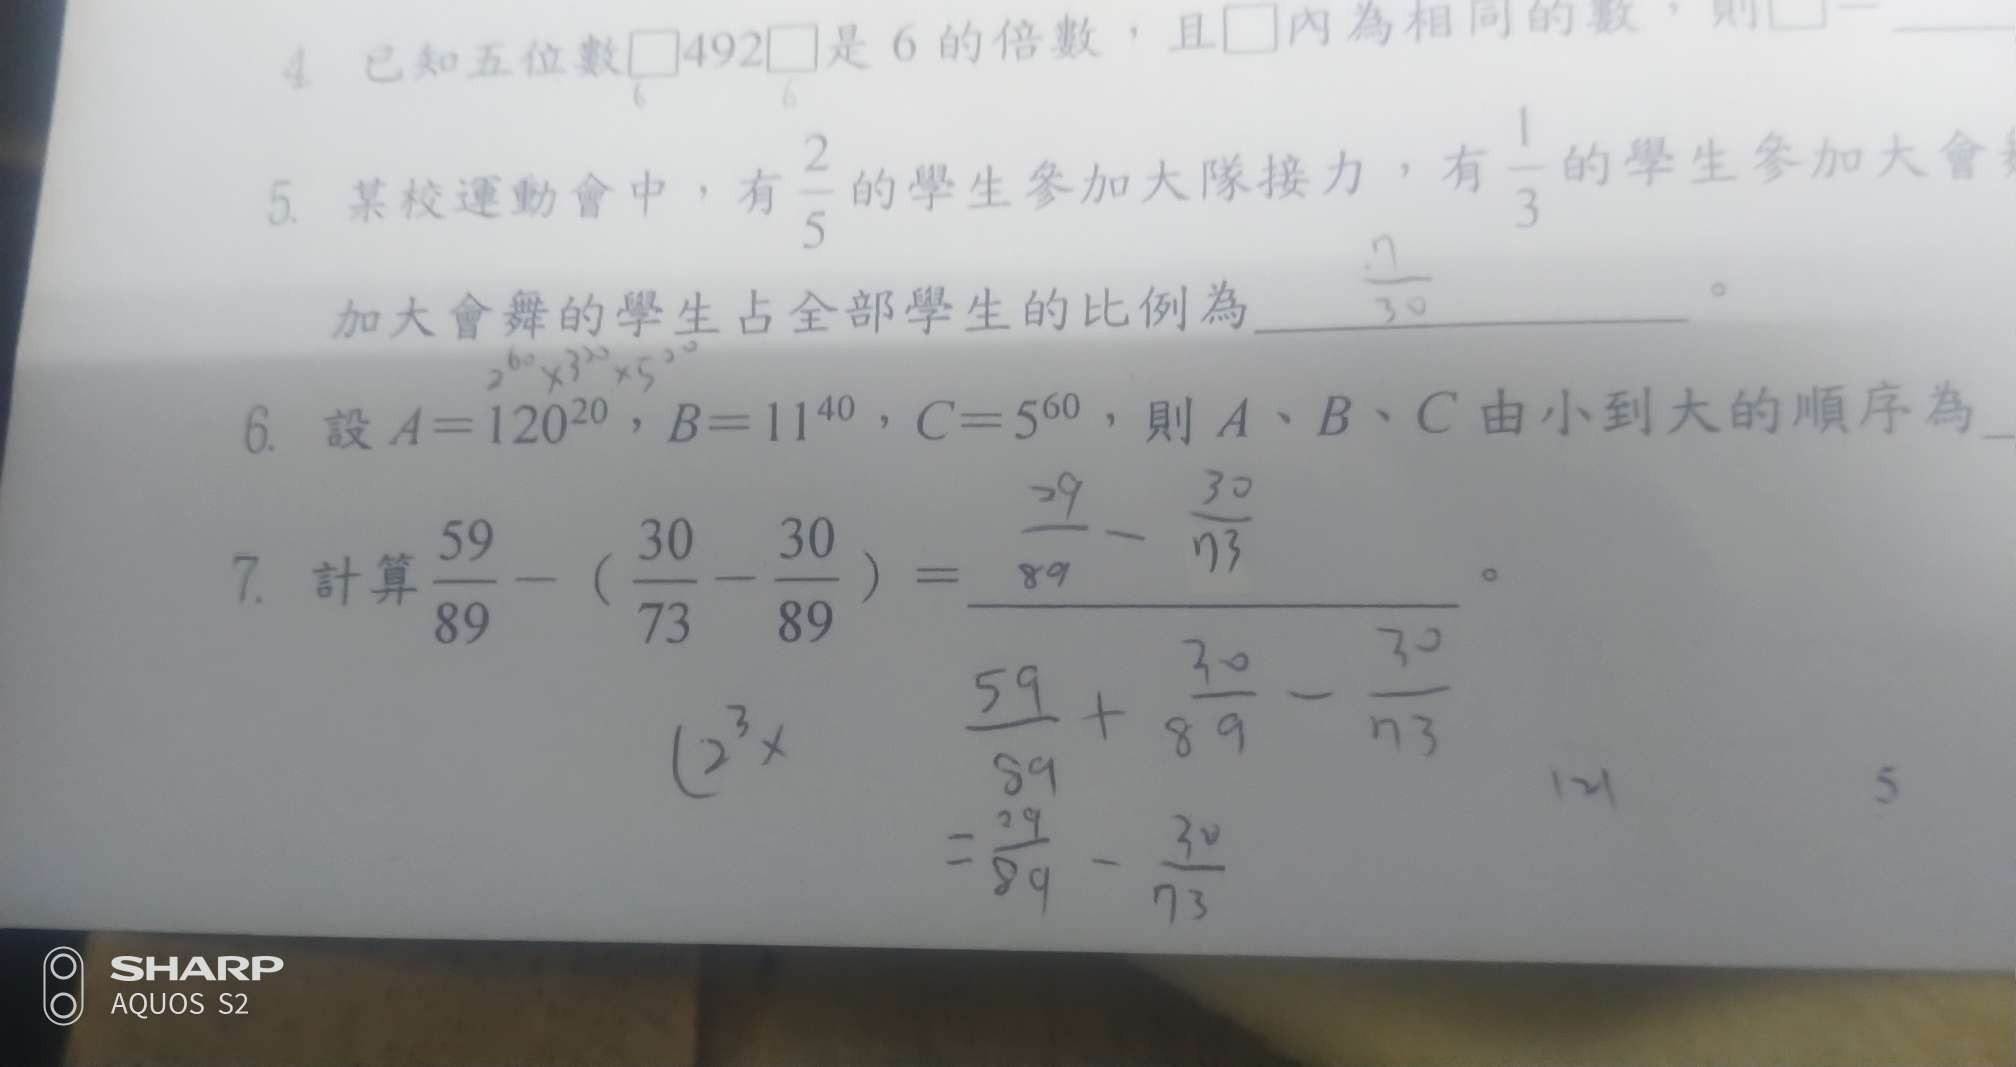 4. 已知五位數□492□是 6 的倍數，且□內為相同的數，則□＝
6 6
5. 某校運動會中，有 2/5 的學生參加大隊接力，有 1/3 的學生參加大會
加大會舞的學生占全部學生的比例為 7/30 。
2^60 × 3^20 × 5^20
6. 設 A＝120^20，B＝11^40，C＝5^60，則 A、B、C 由小到大的順序為
7. 計算 59/89 －（30/73 － 30/89）＝ 29/89 － 30/73 。
59/89 + 30/89 － 30/73
(2^3 ×
121 5
= 29/89 － 30/73
SHARP
AQUOS S2